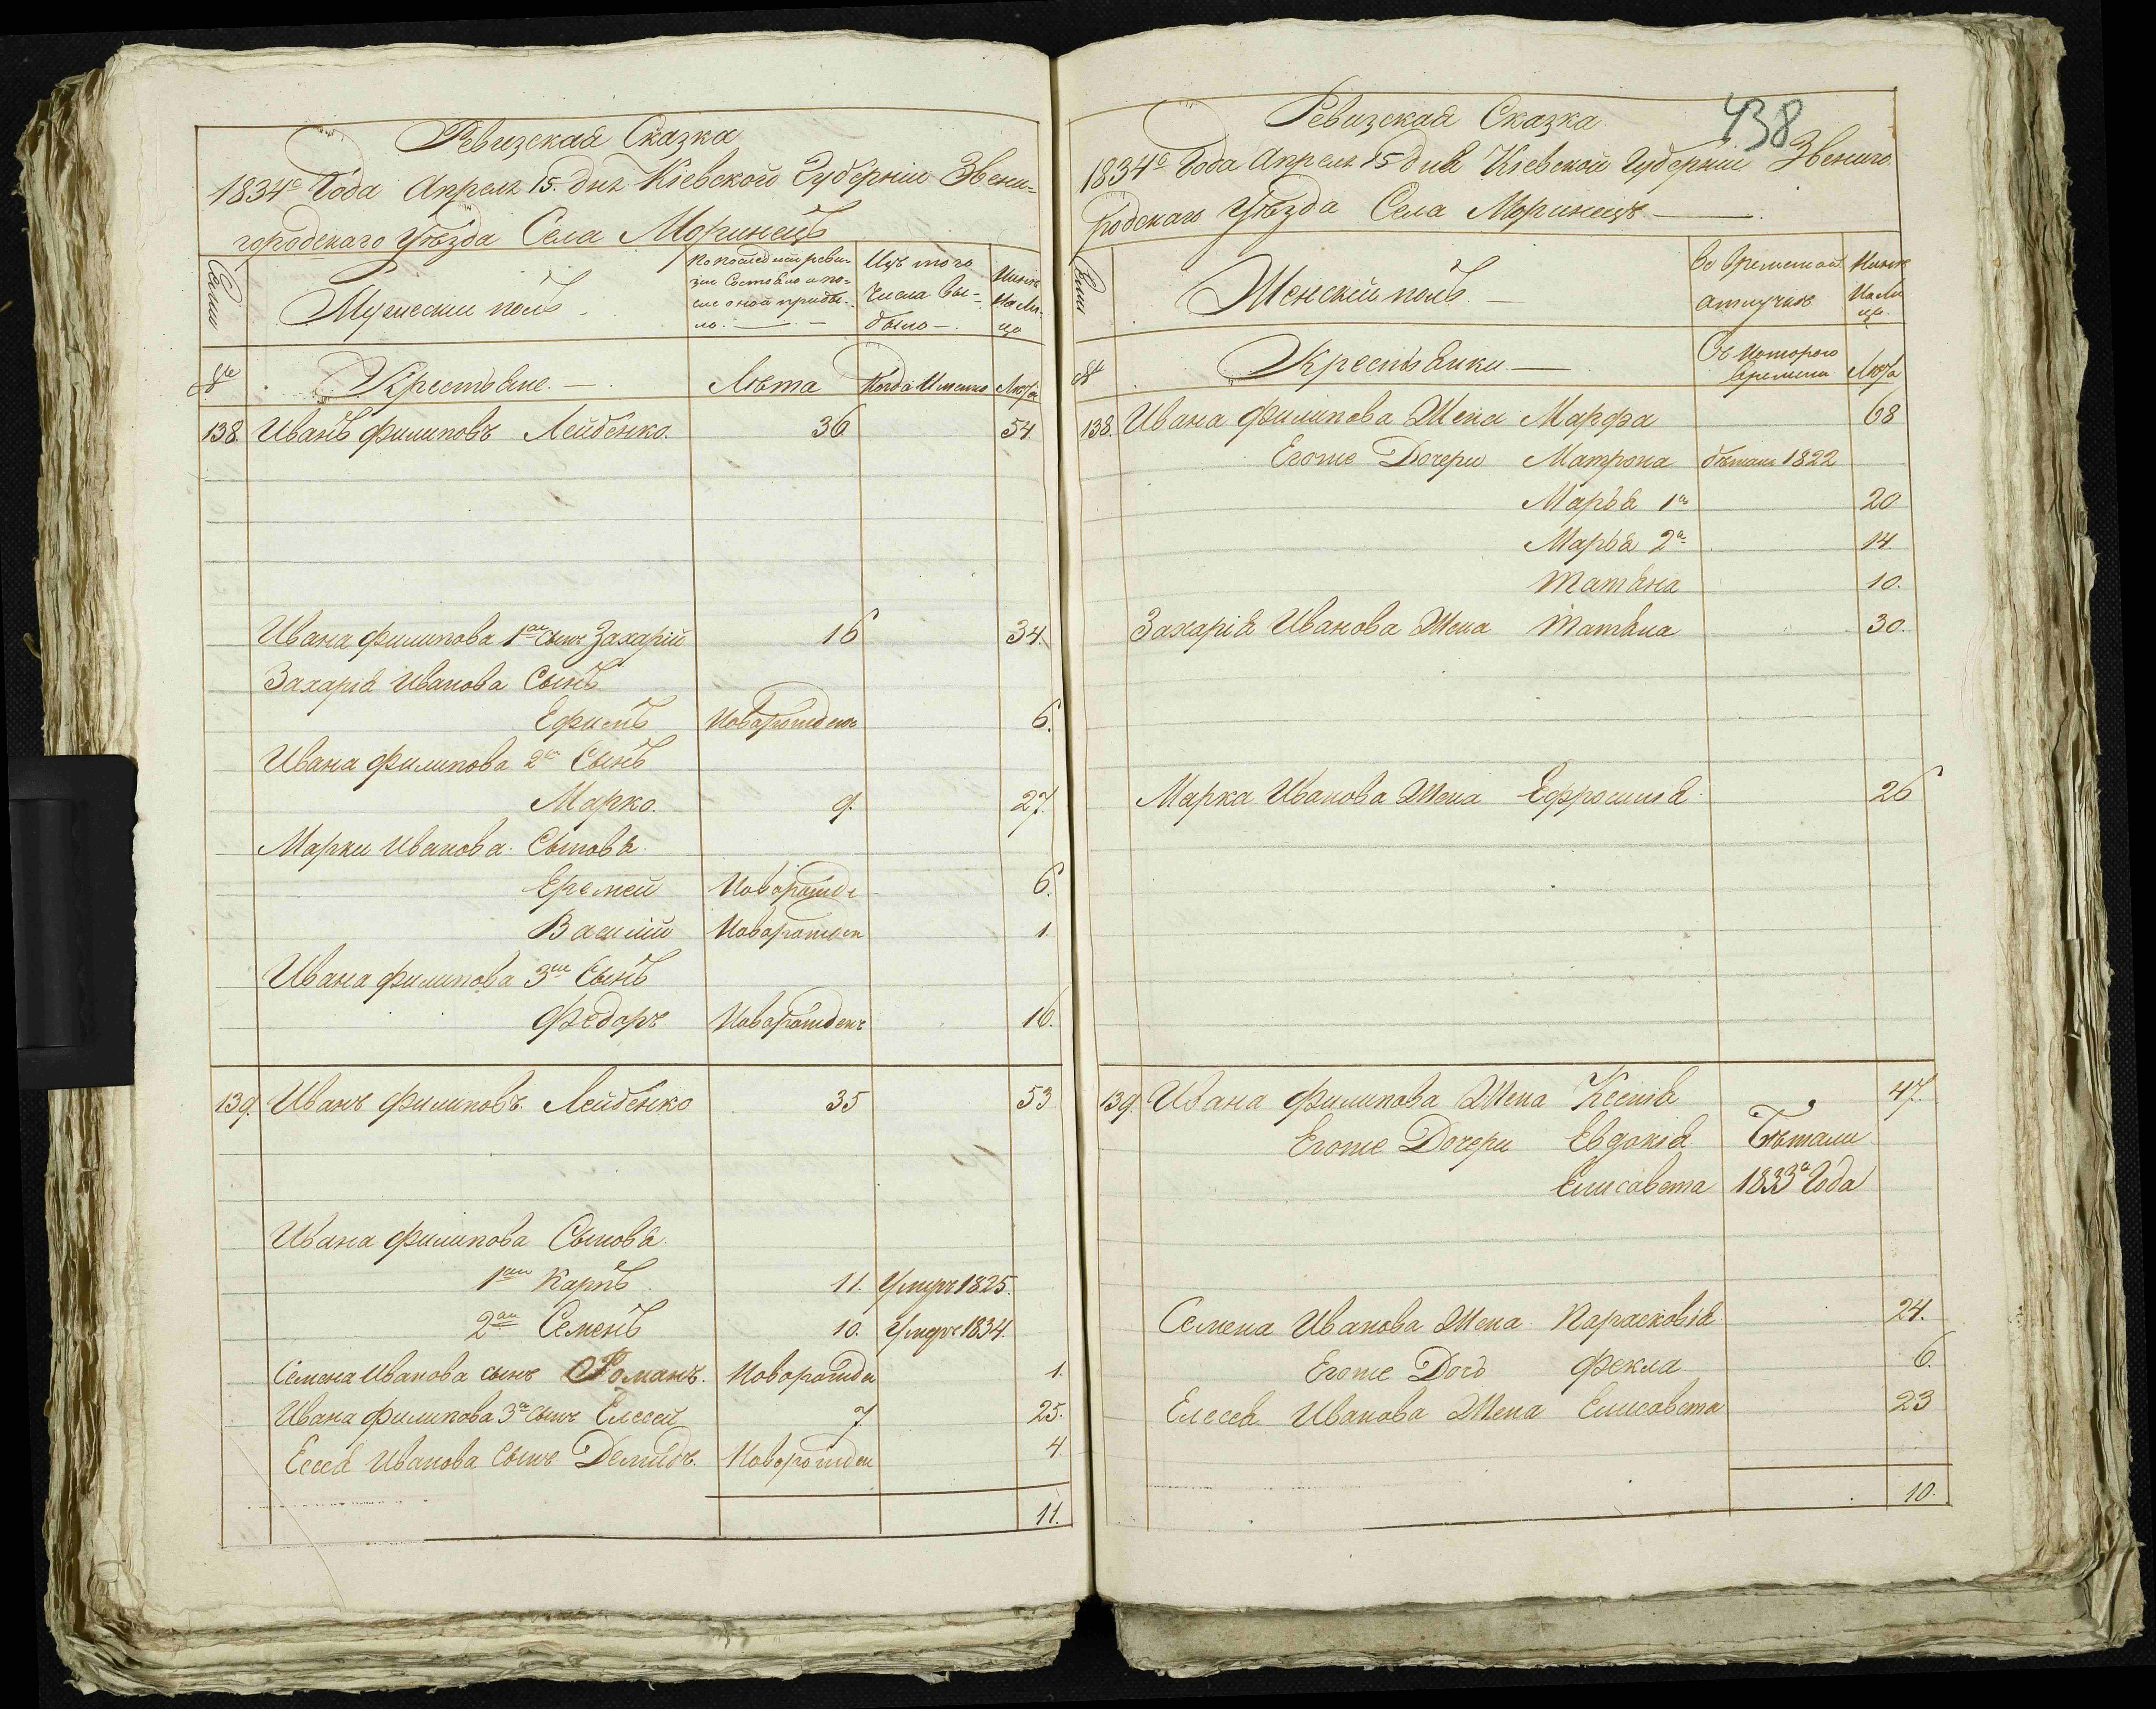 Ревизская Сказка
1834го Года Апреля 15. дня Кіевской Губерніи Звени=
городскаго Уѣзда Села Моринецъ
Семьи
Мужески полъ
По последней реви-
зіи Состояло и по-
сле оной прибы-
ло.
Изъ того
Числа вы-
было
Нынѣ
На ли-
цо
Крестьяне.
Лѣта
Когда Именно
Лѣта
138. Иванъ Филиповъ Лейбенко. 36 54
Ивана Филипова 1ый Сынъ Захарій 16 34.
Захарія Иванова Сынъ
Ефимъ Новорожденъ 6.
Ивана Филипова 2ой Сынъ
Марко. 9. 27.
Марки Иванова Сыновя
Еремей Новорожде 6.
Василій Новорожден 1.
Ивана Филипова 3ій Сынъ
Федоръ Новорожденъ 16.
139. Иванъ Филиповъ Лейбенко 35 53
Ивана Филипова Сыновя
1ый Карпъ 11. Умеръ 1825.
2ой Семенъ 10. Умеръ 1834.
Семена Иванова сынъ Романъ. Новорожден 1.
Ивана Филипова 3й Сынъ Елесей 7 25.
Есея Иванова Сынъ Демидъ. Новорожден 4.
11.
438
Ревизская Сказка
1834го Года Апреля 15 дня Кіевской Губерніи Звениго
родскаго Уѣзда Села Моринецъ
Семьи
Женскій полъ
Во временной
отлучкѣ
Нынѣ
На ли
цо.
Крестьянки
Съ Которого
Времени
Лѣта
138. Ивана Филипова Жена Марфа 68
Егоже Дочери Матрона бѣжала 1822
Марья 1я 20
Марья 2я 14.
Татяна 10.
Захарія Иванова Жена Татяна 30.
Марка Иванова Жена Ефросинія 26
139. Ивана Филипова Жена Ксенія 47.
Егоже Дочери Евдокія Бѣжали
Елисавета 1833го Года
Семена Иванова Жена Парасковія 24.
Егоже Дочь Фекла 6.
Елесея Иванова Жена Елисавета 23
10.